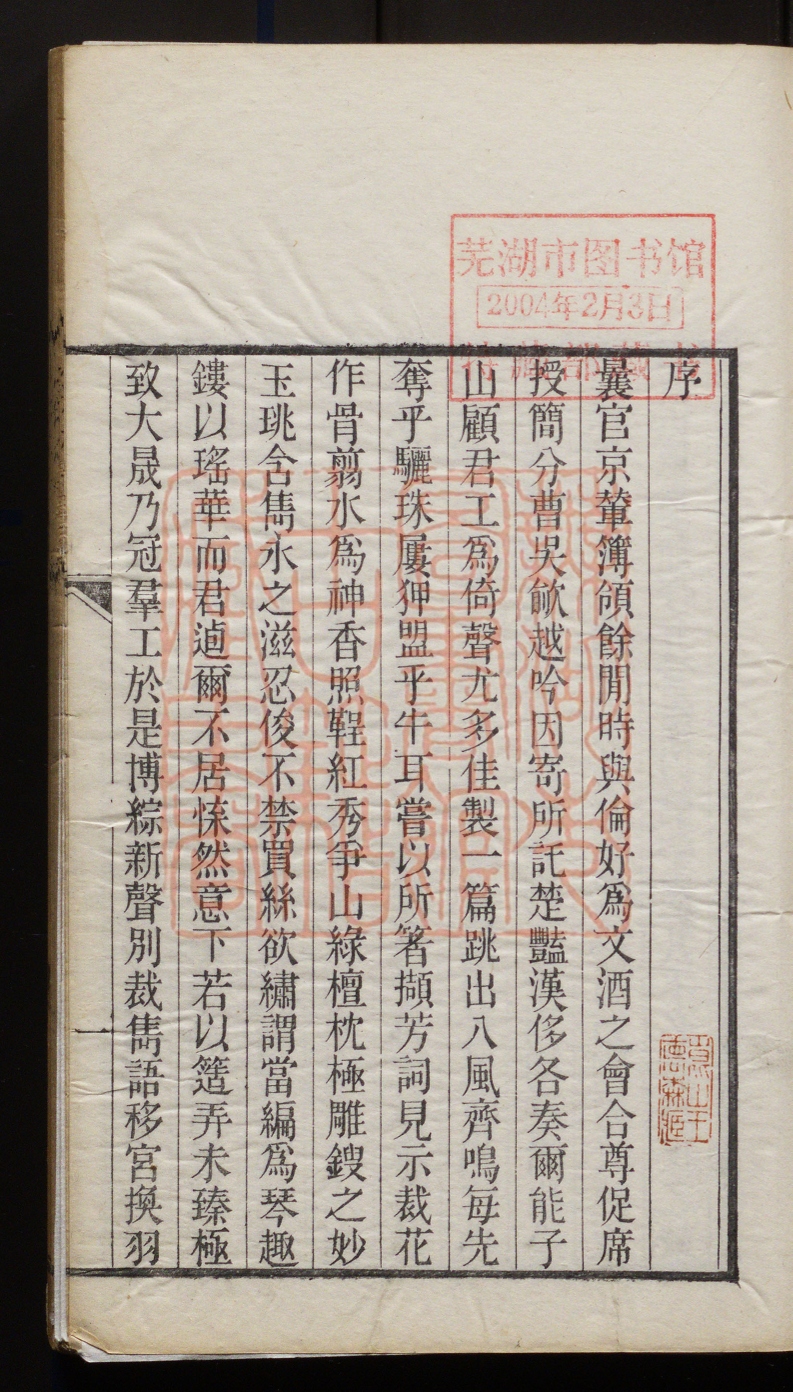 芜湖市图书馆
2004年2月3日
特藏部藏书
序
曩官京輦簿領餘閒時與倫好爲文酒之會合尊促席
授簡分曹吳歈越吟因寄所託楚豔漢侈各奏爾能子
山顧君工爲倚聲尤多佳製一篇跳出八風齊鳴每先
奪乎驪珠屢狎盟乎牛耳嘗以所箸擷芳詞見示裁花
作骨翦水爲神香照鞓紅秀爭山綠檀枕極雕鎪之妙
玉珧含雋永之滋忍俊不禁買絲欲繡謂當編爲琴趣
鏤以瑤華而君逌爾不居悚然意下若以簉弄未臻極
致大晟乃冠羣工於是博綜新聲別裁雋語移宮換羽
一